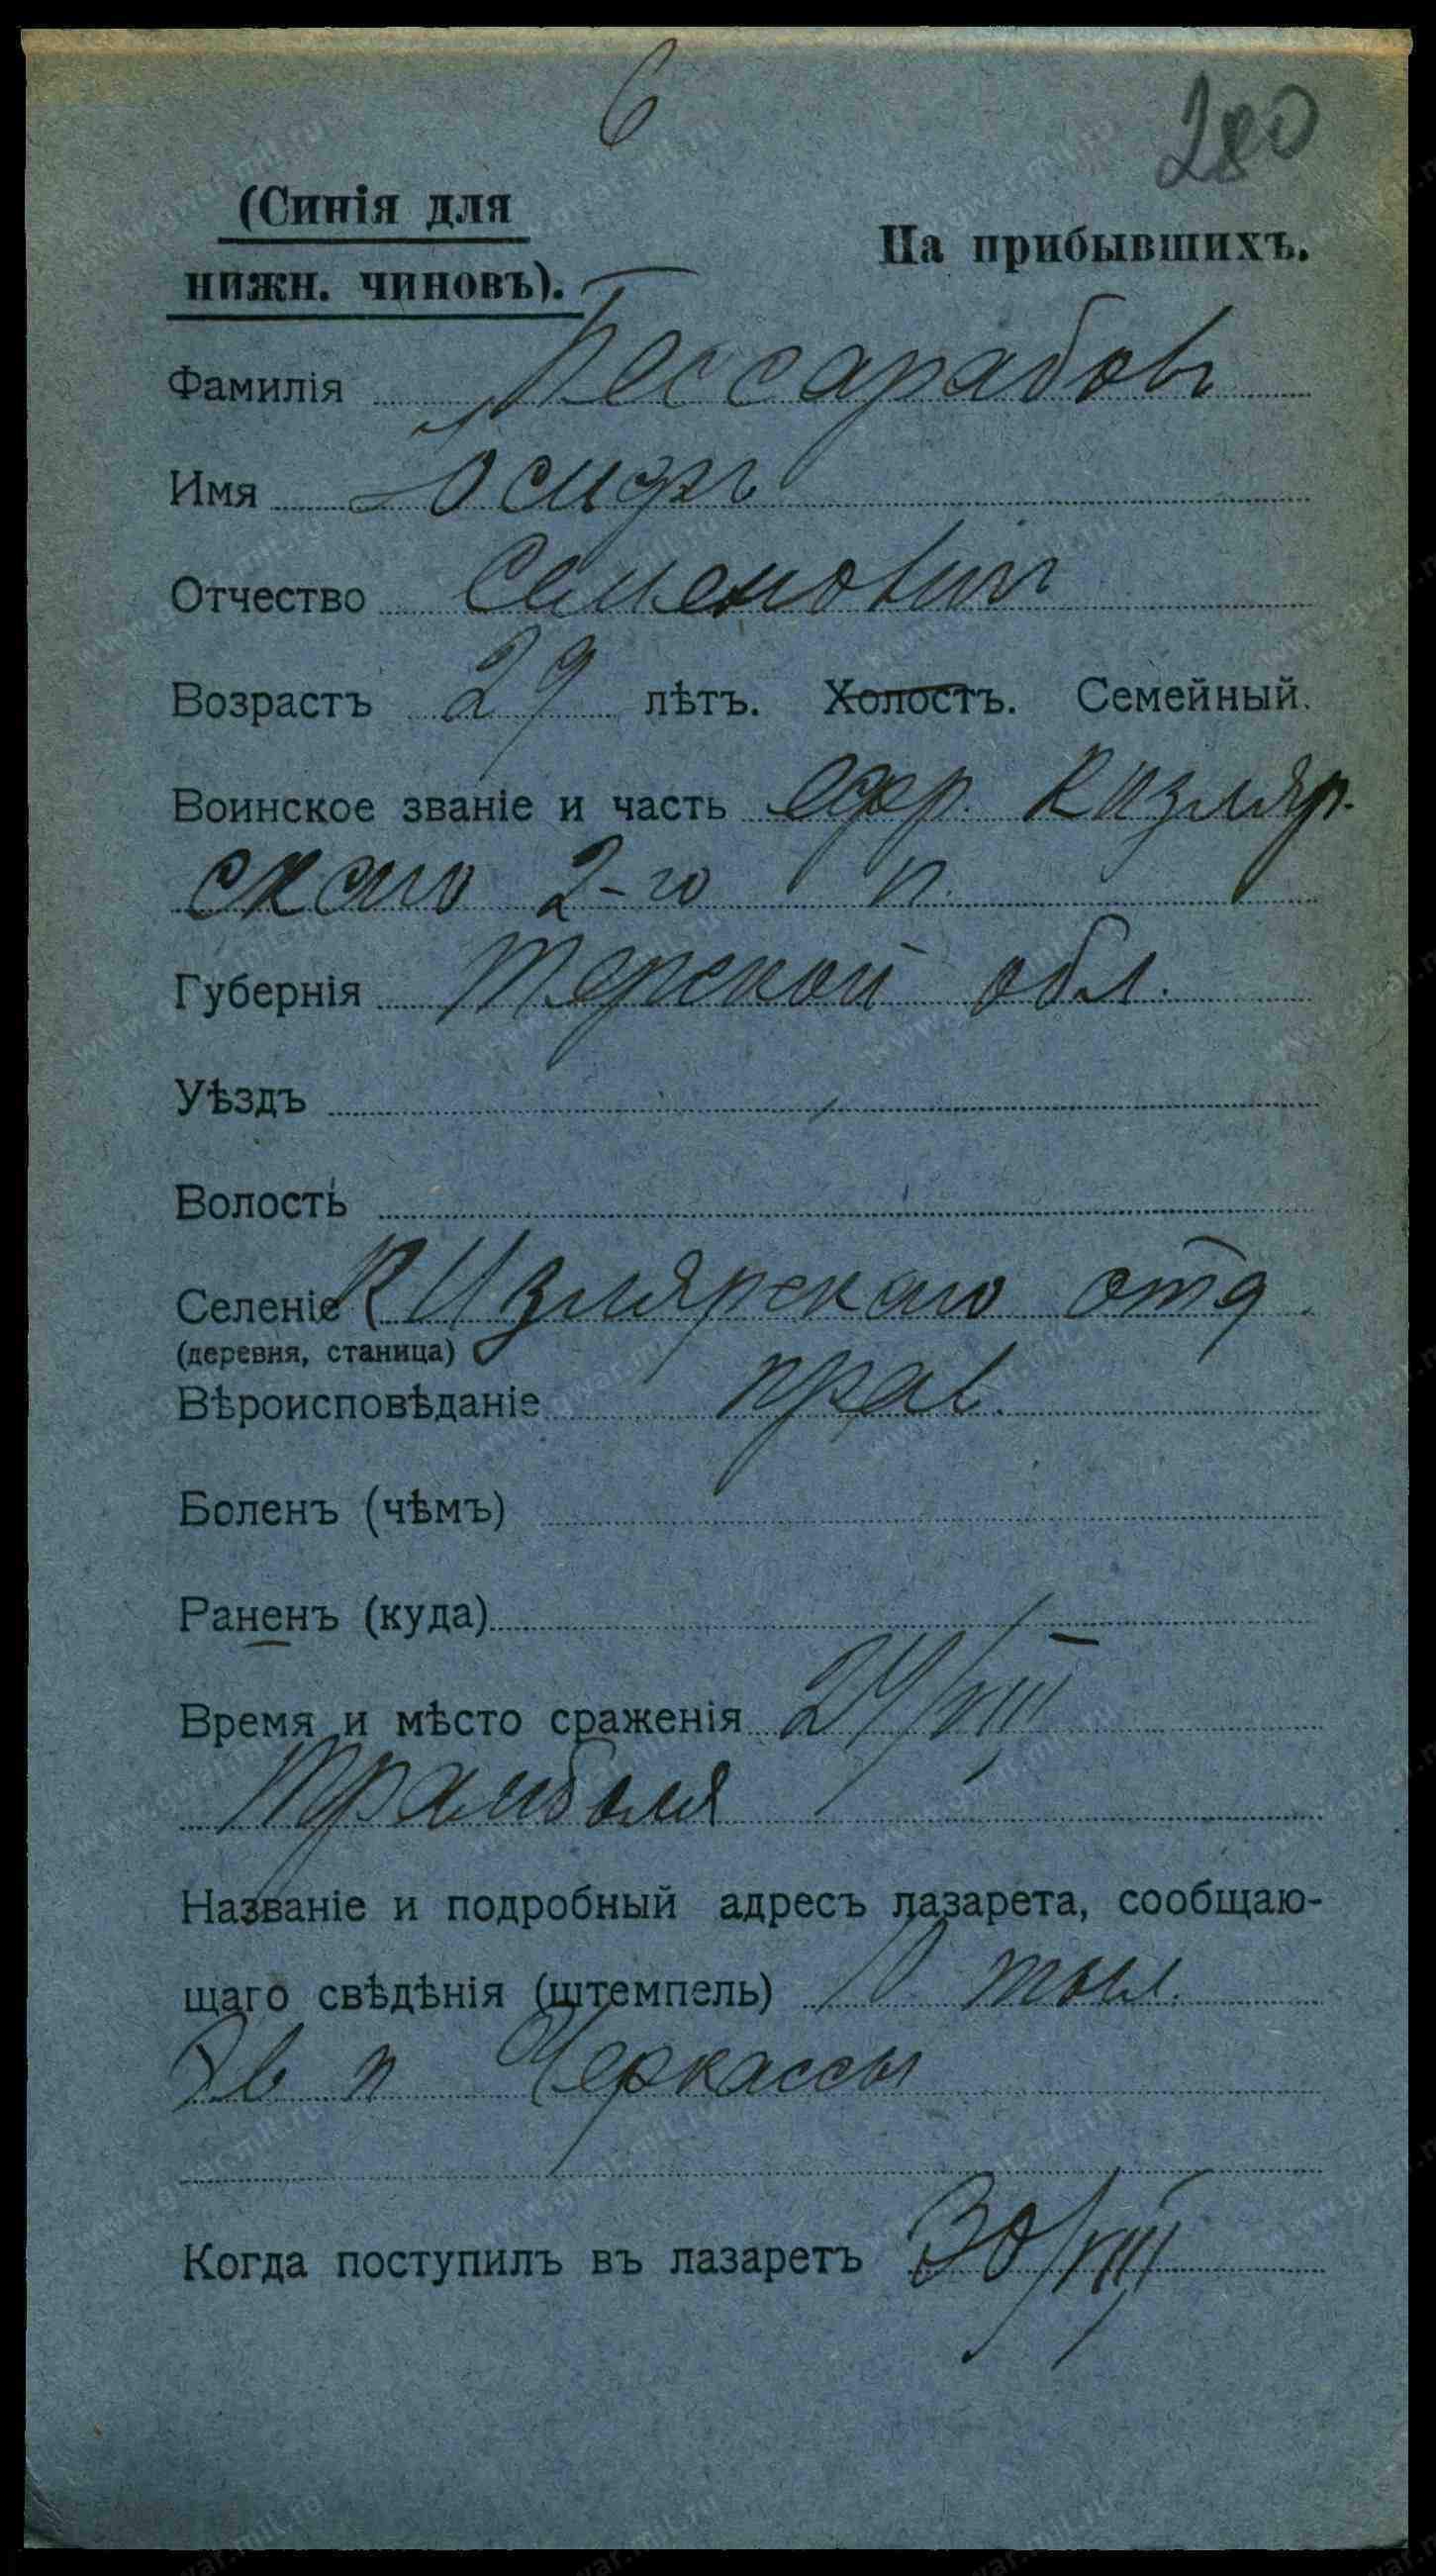 6
280
(Синія для
нижн. чиновъ).
На прибывшихъ.
Фамилія Бессарабовъ
Имя Осипъ
Отчество Семеновичъ
Возрастъ 29 лѣтъ. Холостъ. Семейный.
Воинское званіе и часть Ефр. Кизляр-
скаго 2-го п.
Губернія Терской обл.
Уѣздъ
Волость
Селеніе Кизлярскаго отд
(деревня, станица)
Вѣроисповѣданіе прав.
Боленъ (чѣмъ)
Раненъ (куда)
Время и мѣсто сраженія 24/VIII
Трамболя
Названіе и подробный адресъ лазарета, сообщаю-
щаго свѣдѣнія (штемпель) тыл.
Эв п Черкассы
Когда поступилъ въ лазаретъ 30/VIII